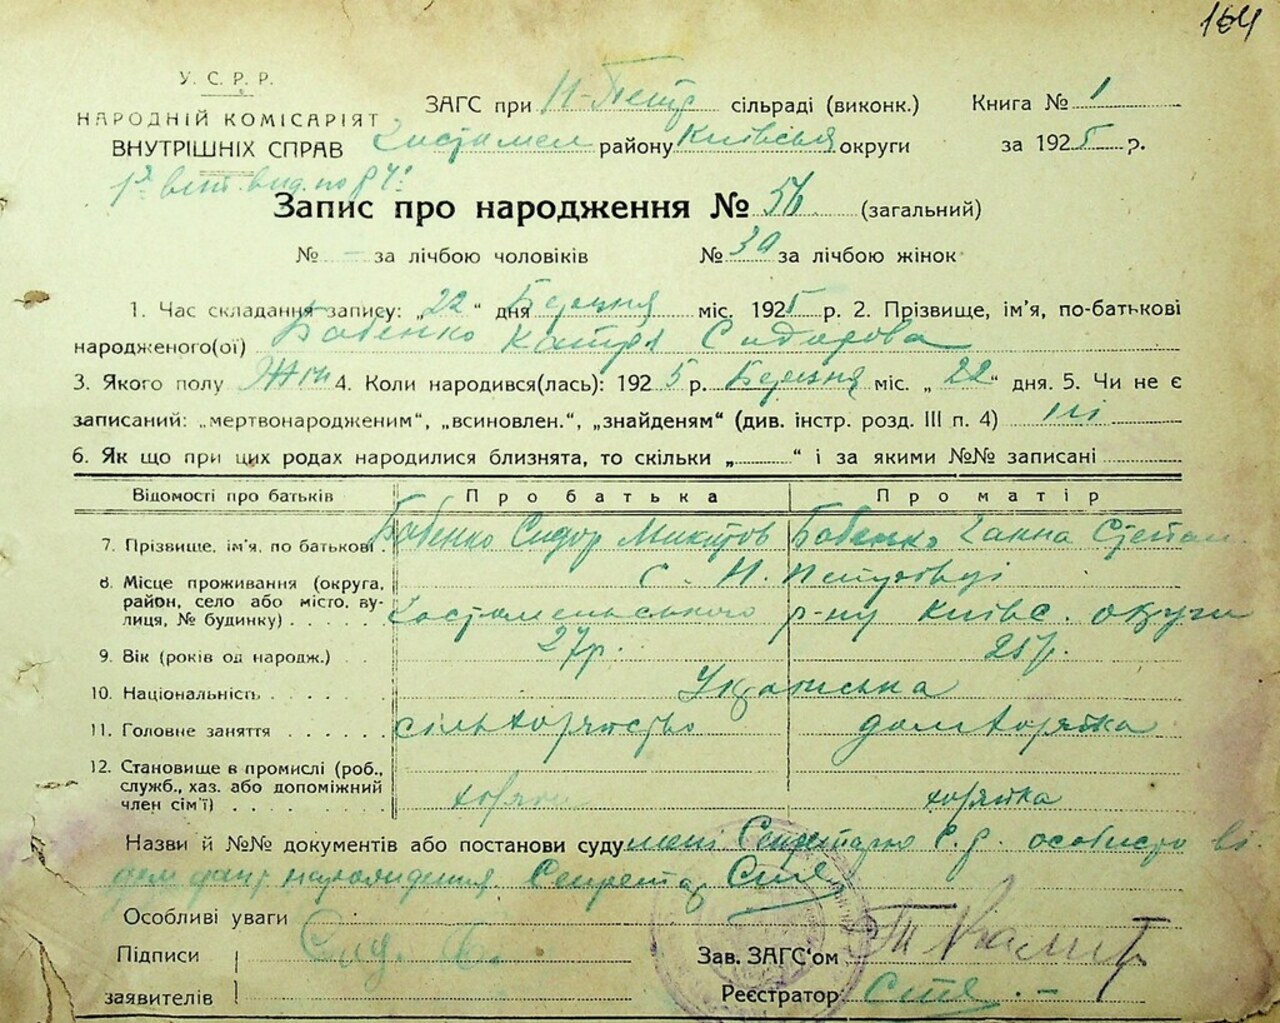 164
У. С. Р. Р.
НАРОДНІЙ КОМІСАРІЯТ
ВНУТРІШНІХ СПРАВ
ЗАГС при Н-Петр сільраді (виконк.)
Книга № 1
Гостомел району Київської округи
за 1925 р.
Запис про народження № 56 (загальний)
№ – за лічбою чоловіків № 30 за лічбою жінок
1. Час складання запису: „22“ дня Березня міс. 1925 р. 2. Прізвище, ім'я, по-батькові
народженого(ої) Бабенко Катря Сидорова
3. Якого полу Жін 4. Коли народився(лась): 1925 р. Березня міс. „22“ дня. 5. Чи не є
записаний: „мертвонародженим“, „всиновлен.“, „знайденям“ (див. інстр. розд. III п. 4) ні
6. Як що при цих родах народилися близнята, то скільки „......“ і за якими №№ записані
Відомості про батьків Про батька Про матір
7. Прізвище, ім'я, по батькові Бабенко Сидор Микитов Бабенко Ганна Степан.
8. Місце проживання (округа, район, село або місто, вулиця, № будинку) с. Н. Петрівці
Гостомельського р-ну Київс. округи
9. Вік (років од народж.) 27р. 25р.
10. Національність Українська
11. Головне заняття сільхазяйство домхазяйка
12. Становище в промислі (роб., служб., хаз. або допоміжний член сім'ї) хазяїн хазяйка
Назви й №№ документів або постанови суду мені Секретарю С.р. особисто ві
народження. Секретар
Особливі уваги
Підписи
заявителів
Зав. ЗАГС'ом
Реєстратор